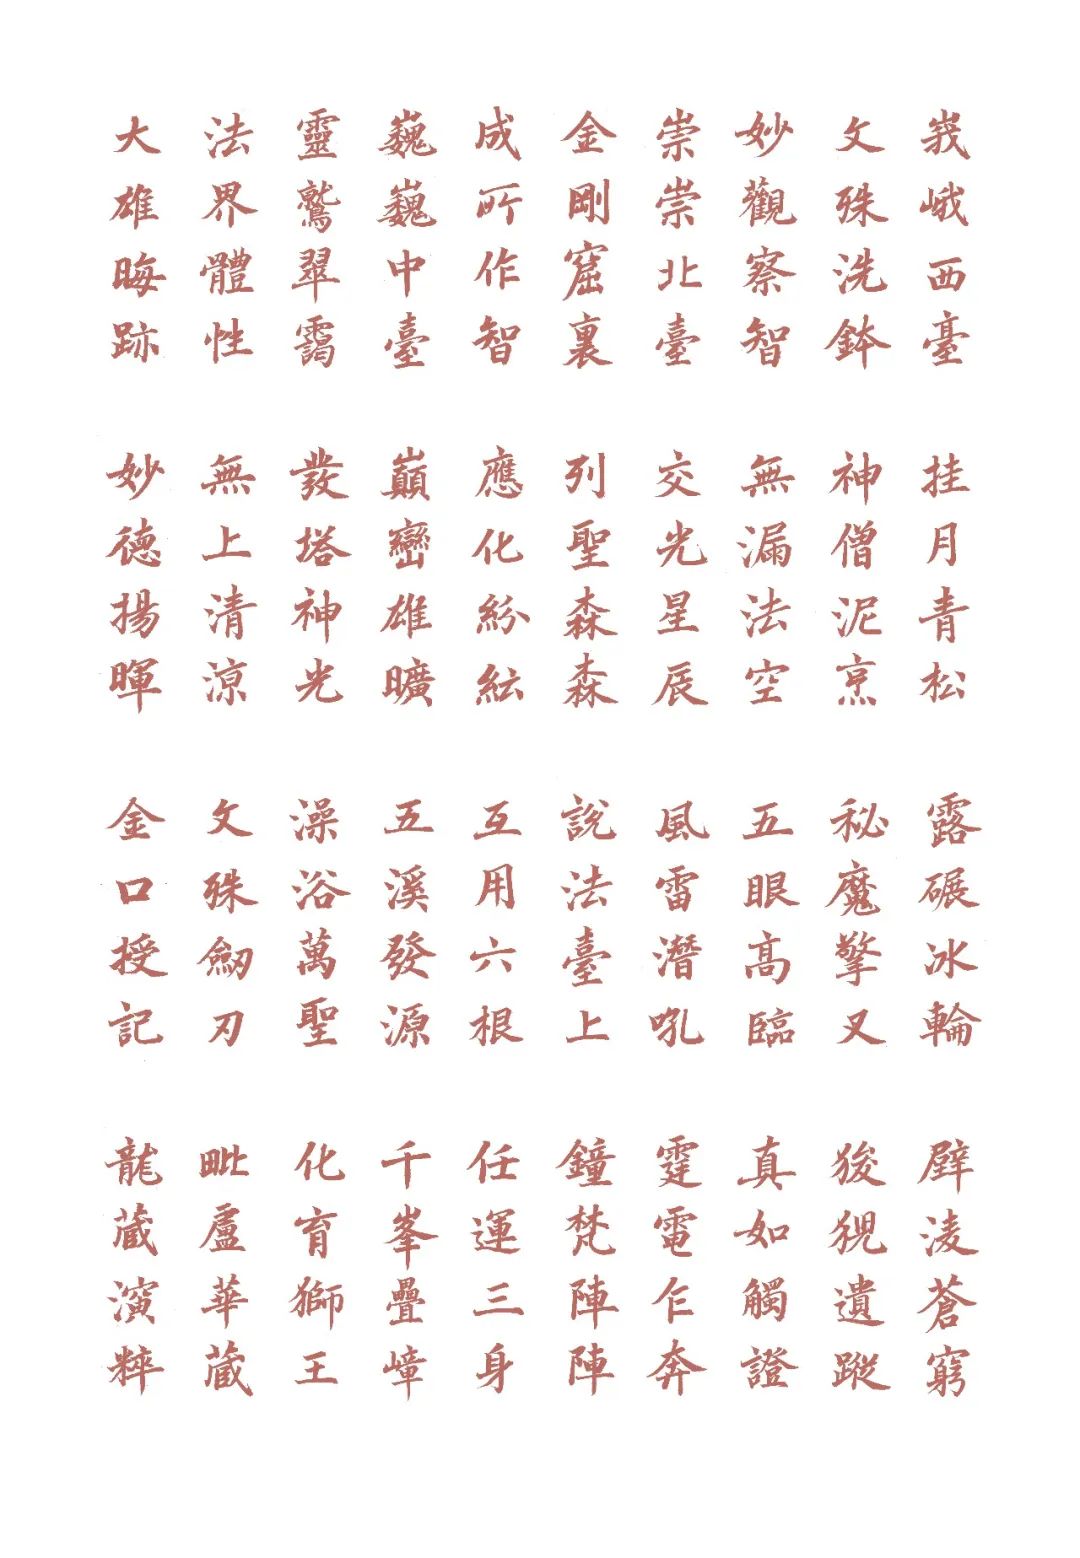 峩峨西臺 挂月青松 露碾冰輪 壁淩蒼穹
文殊洗鉢 神僧泥烹 秘魔擎叉 狻猊遺蹤
妙觀察智 無漏法空 五眼高臨 真如觸證
崇崇北臺 交光星辰 風雷潛吼 霆電乍奔
金剛窟裏 列聖森森 說法臺上 鐘梵陣陣
成所作智 應化紛紜 互用六根 任運三身
巍巍中臺 巔巒雄曠 五溪發源 千峯疊嶂
靈鷲翠靄 發塔神光 澡浴萬聖 化育獅王
法界體性 無上清涼 文殊劒刃 毗盧華藏
大雄晦跡 妙德揚暉 金口授記 龍藏演粹